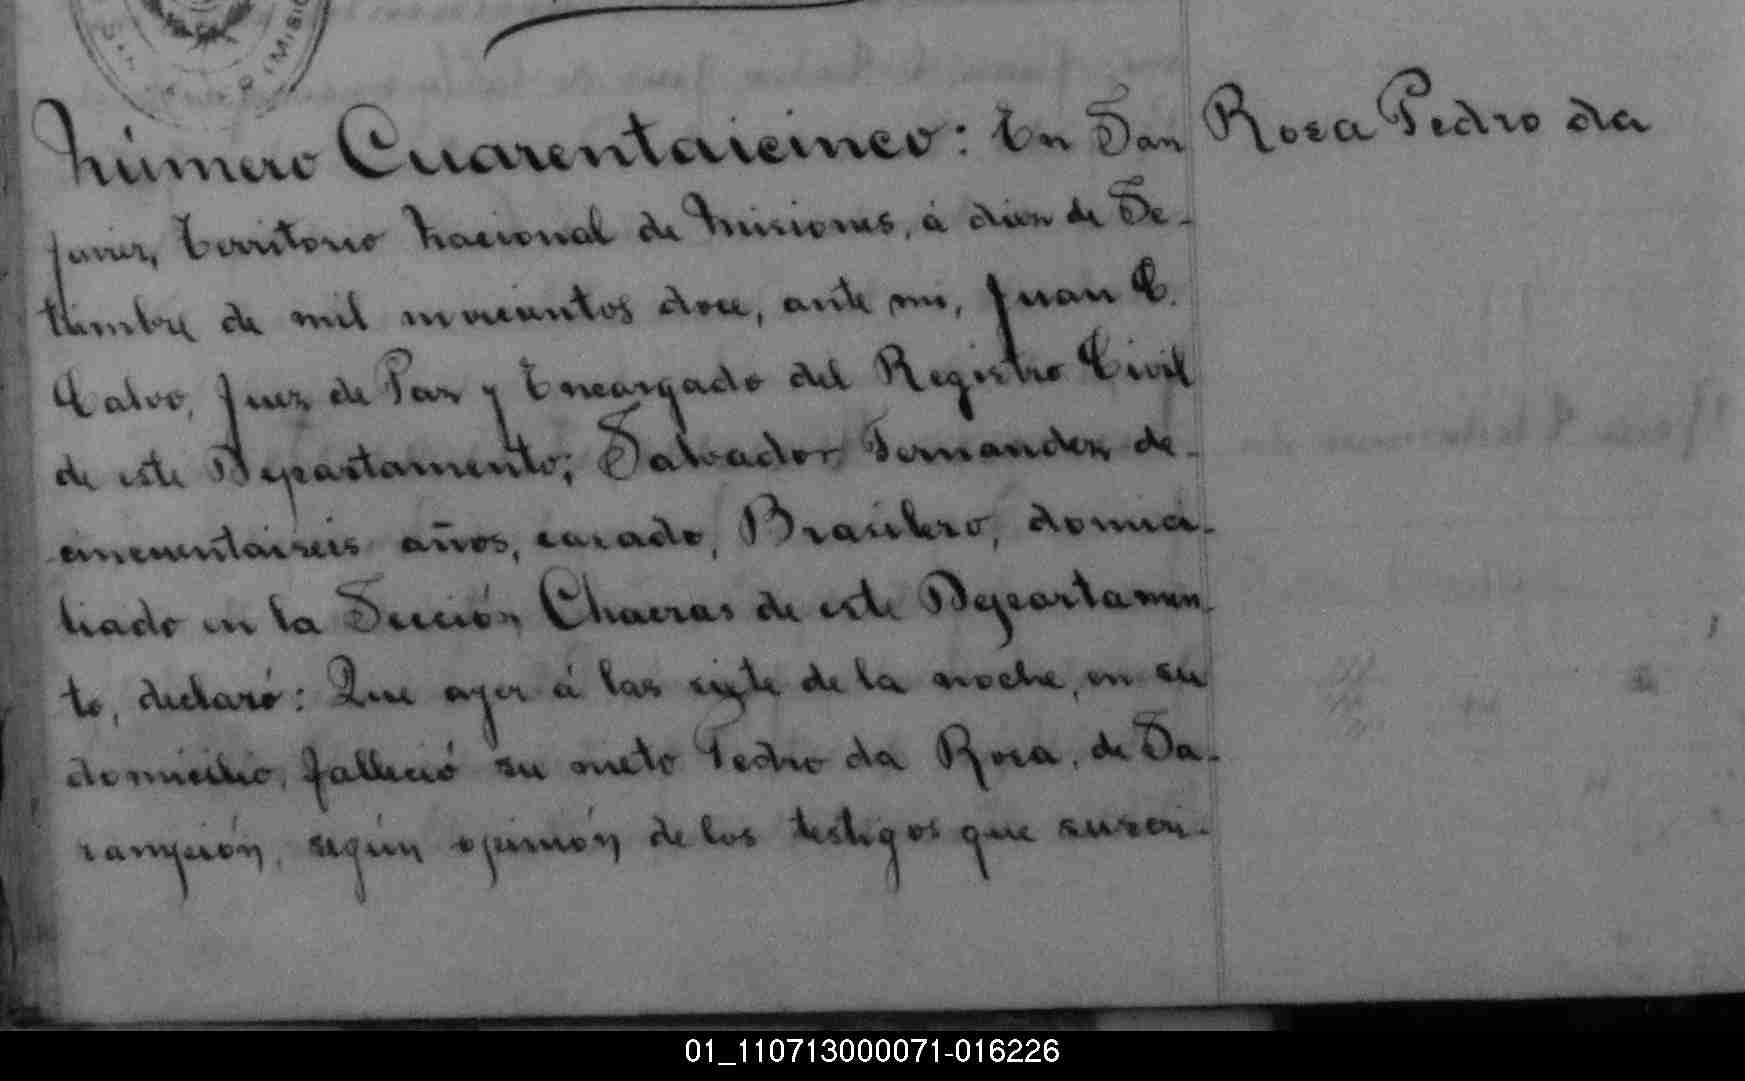 Número Cuarentaicinco: En San
Rosa Pedro da
Javier, Territorio Nacional de Misiones, á diez de Se-
tiembre de mil novecientos doce, ante mi, Juan C.
Calvo, Juez de Paz y Encargado del Registro Civil
de este Departamento; Salvador Fernandez de
cincuentaiseis años, casado, Brasilero, domici-
liado en la Sección Chacras de este Departamen-
to, declaró: Que ayer á las siete de la noche, en su
domicilio, falleció su nieto Pedro da Rosa, de Sa-
rampión, según opinión de los testigos que suscri-
01_110713000071-016226